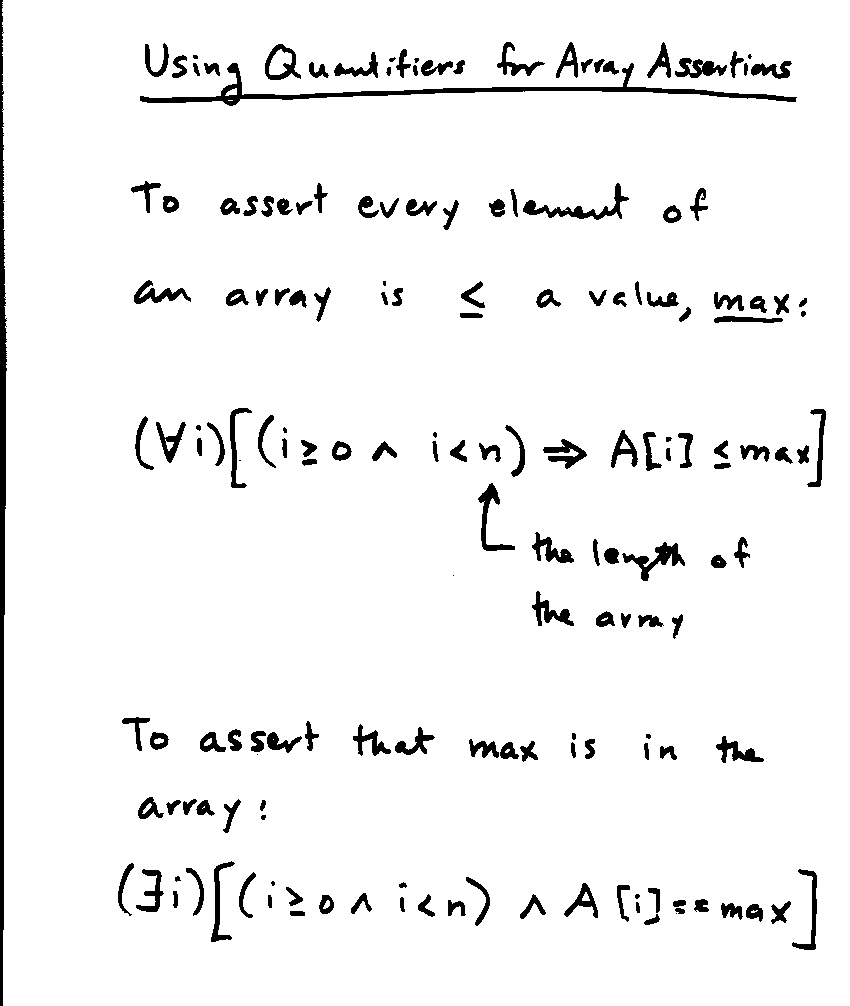 Using Quantifiers for Array Assertions
To assert every element of
an array is ≤ a value, max:
(∀i)[(i≥0 ∧ i<n) ⇒ A[i] ≤max]
the length of
the array
To assert that max is in the
array:
(∃i)[(i≥0 ∧ i<n) ∧ A[i]==max]